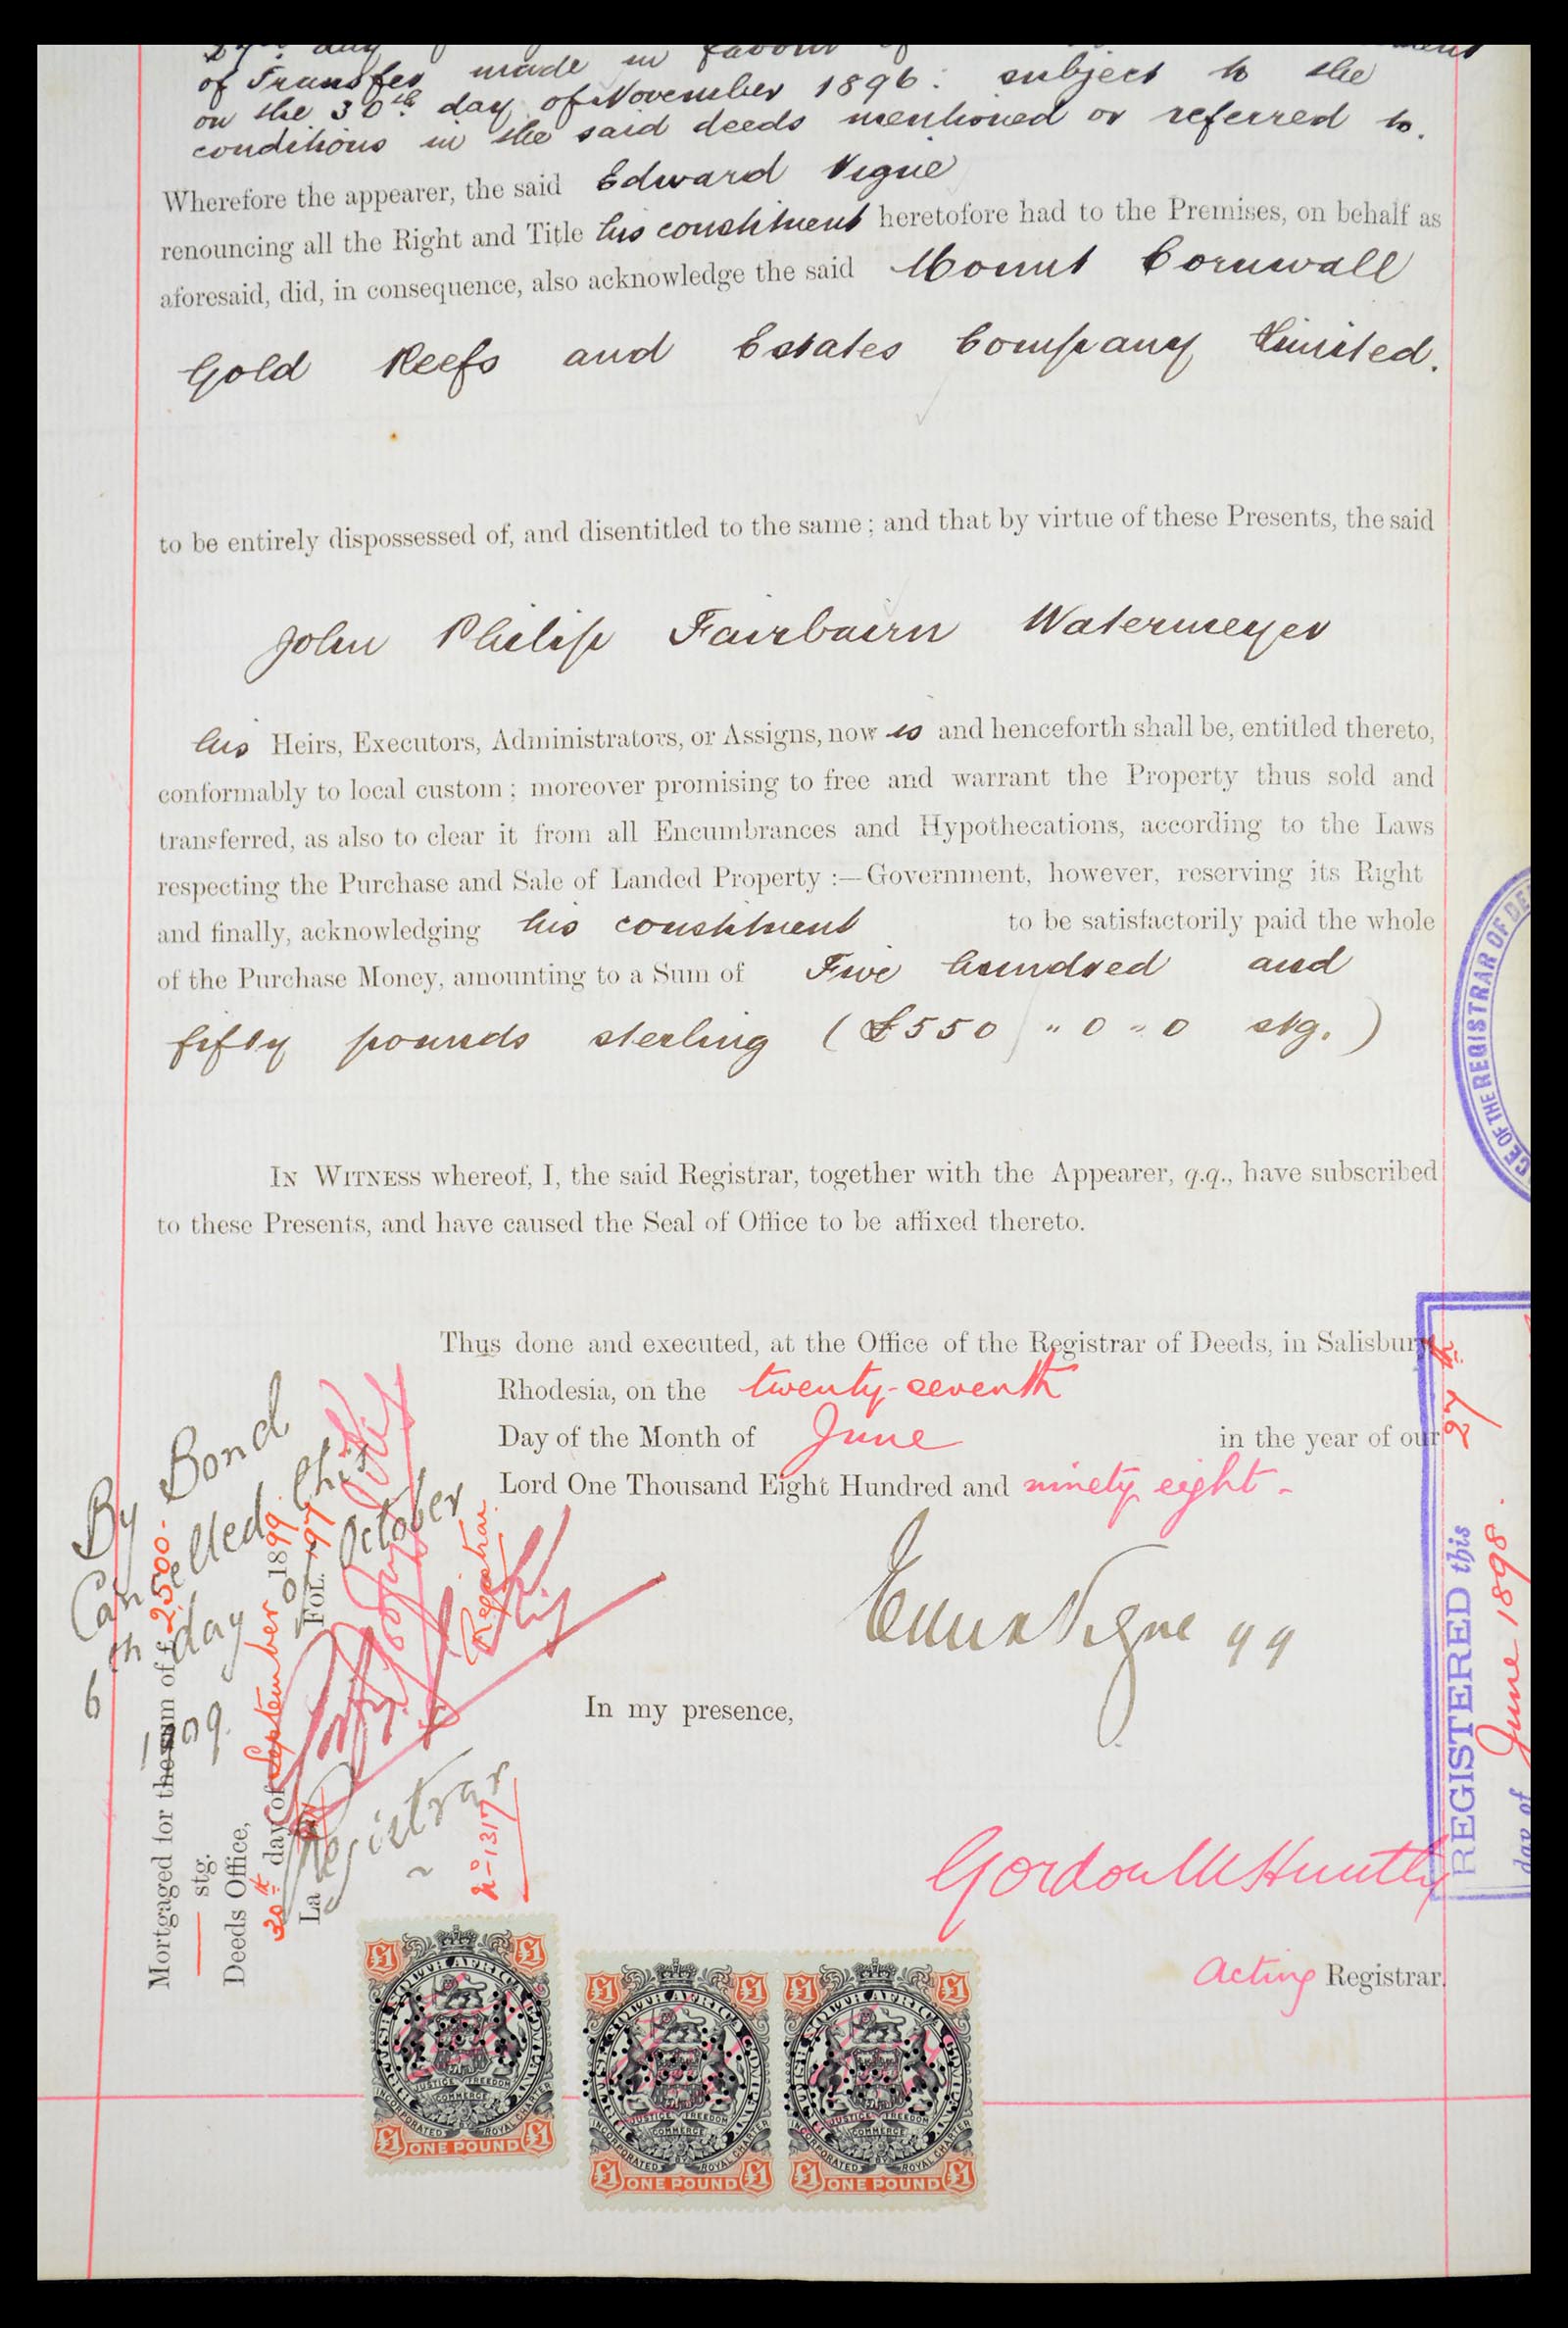 of Transfer made in favour of
on the 30th day of November 1896: subject to the
conditions in the said deeds mentioned or referred to.
Wherefore the appearer, the said Edward Vigne
renouncing all the Right and Title his constituent heretofore had to the Premises, on behalf as
aforesaid, did, in consequence, also acknowledge the said Mount Cornwall
Gold Reefs and Estates Company Limited.
to be entirely dispossessed of, and disentitled to the same; and that by virtue of these Presents, the said
John Philip Fairbairn Watermeyer
his Heirs, Executors, Administrators, or Assigns, now is and henceforth shall be, entitled thereto,
conformably to local custom; moreover promising to free and warrant the Property thus sold and
transferred, as also to clear it from all Encumbrances and Hypothecations, according to the Laws
respecting the Purchase and Sale of Landed Property :—Government, however, reserving its Right
and finally, acknowledging his constituent to be satisfactorily paid the whole
of the Purchase Money, amounting to a Sum of Five hundred and
fifty pounds sterling (£550 " 0 " 0 stg.)
IN WITNESS whereof, I, the said Registrar, together with the Appearer, q.q., have subscribed
to these Presents, and have caused the Seal of Office to be affixed thereto.
Thus done and executed, at the Office of the Registrar of Deeds, in Salisbury
Rhodesia, on the twenty-seventh
Day of the Month of June in the year of our
Lord One Thousand Eight Hundred and ninety eight -
Vigne qq
In my presence,
Gordon M Huntly
Acting Registrar.
By Bond
Cancelled this
6th day of October
1909.
Registrar
Mortgaged for the sum of £2500.
stg.
Deeds Office,
30th day of September 1899
FOL. 197
Registrar
No 1317
CE OF THE REGISTRAR OF DE
REGISTERED this 27th
day of June 1898.
£1 £1
BRITISH SOUTH AFRICA COMPANY
JUSTICE FREEDOM
COMMERCE
INCORPORATED BY ROYAL CHARTER
£1 ONE POUND £1
£1 £1
BRITISH SOUTH AFRICA COMPANY
JUSTICE FREEDOM
COMMERCE
INCORPORATED BY ROYAL CHARTER
£1 ONE POUND £1
£1 £1
BRITISH SOUTH AFRICA COMPANY
JUSTICE FREEDOM
COMMERCE
INCORPORATED BY ROYAL CHARTER
£1 ONE POUND £1